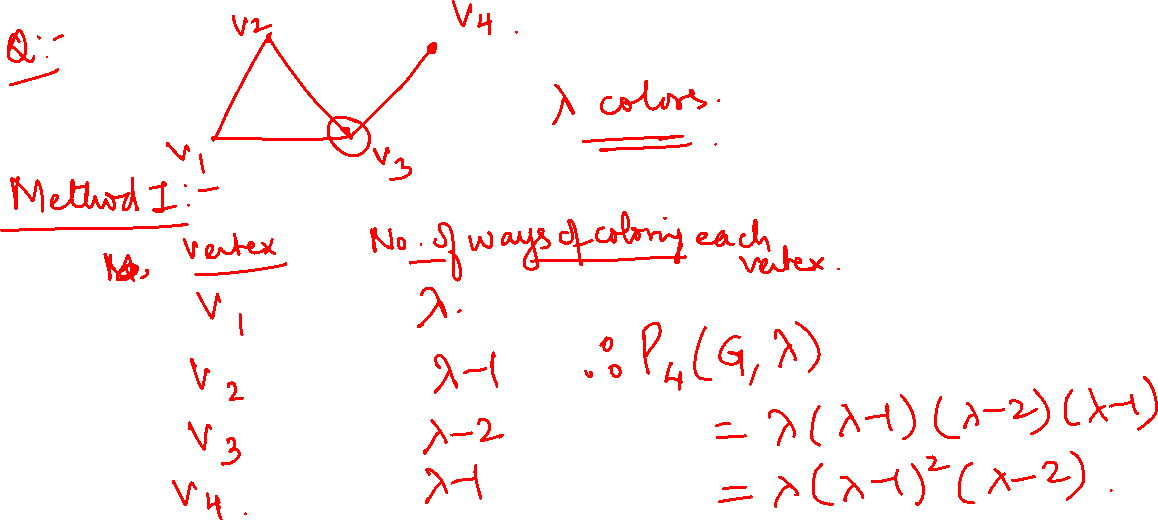 Q:-
V2
V4.
V1
V3
λ colors.
Method I:-
vertex No. of ways of coloring each vertex.
V1 λ.
V2 λ-1
V3 λ-2
V4. λ-1
∴ P₄(G, λ)
= λ(λ-1)(λ-2)(λ-1)
= λ(λ-1)²(λ-2).